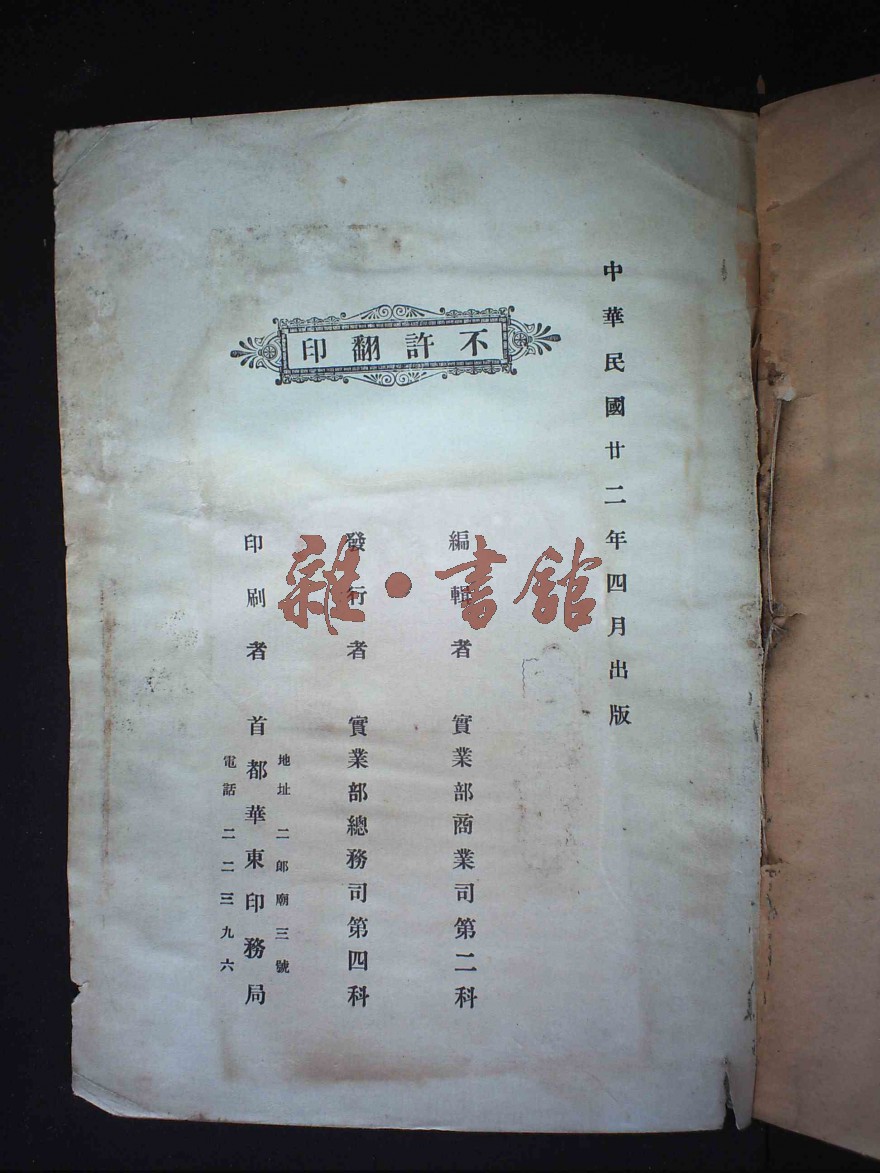 中華民國廿二年四月出版
不許翻印
編輯者 實業部商業司第二科
發行者 實業部總務司第四科
印刷者 首都華東印務局
地址二郎廟三號
電話二二三九六
雜·書館